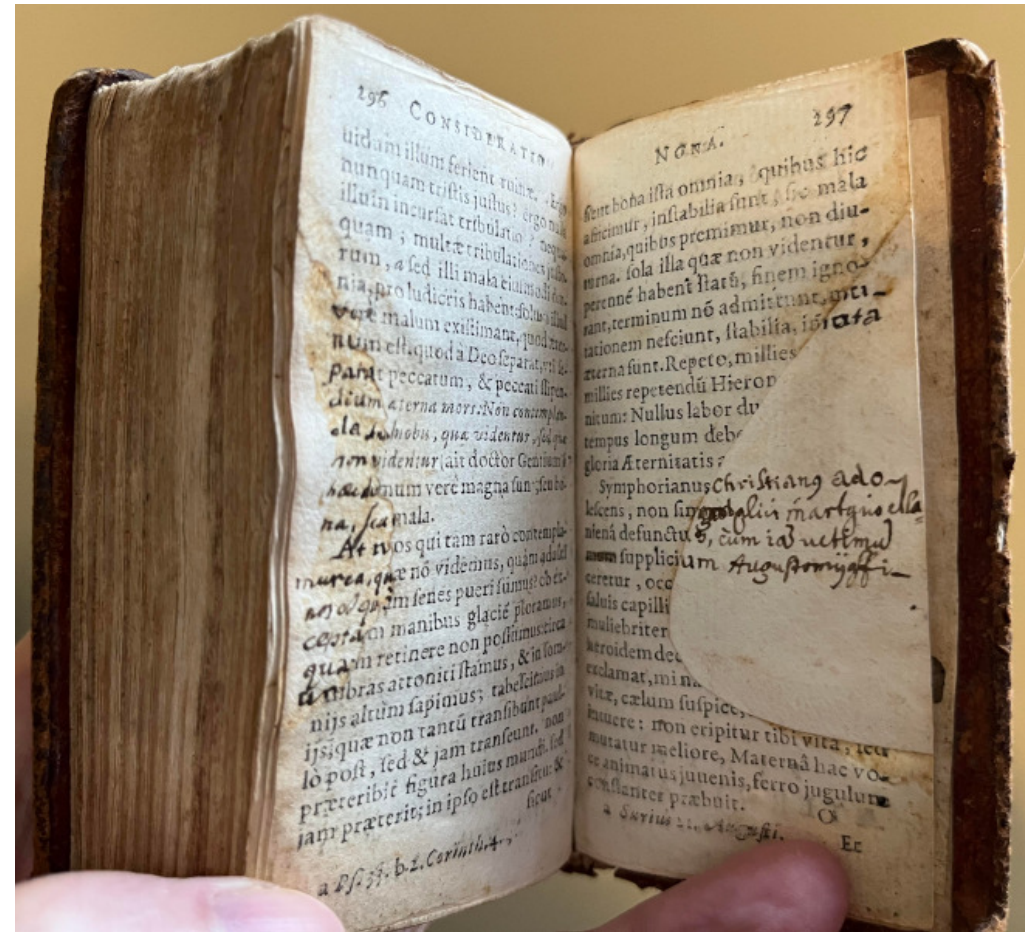 296 CONSIDERATIO
uidum illum ferient ruinæ. Ergo
nunquam tristis justus? ergo nulla
illum incursat tribulatio? nequa-
quam; multæ tribulationes justo-
rum, a sed illi mala eiusmodi om-
nia, pro ludicris habent: solum illud
verè malum existimant, quod æter-
num est, quod à Deo separat, vti se-
parat peccatum, & peccati stipen-
dium æterna mors: Non contemplan-
da sunt nobis, quæ videntur, sed quæ
non videntur (ait doctor Gentium) b
hæc bonum verè magna sunt, seu bo-
na, seu mala.
At nos qui tam rarò contempla-
murea, quæ nō videmus, quàm adoles
quàm senes pueri sumus? ob ere-
ptam manibus glaciē ploramus,
quam retinere non possumus: circa
vmbras attoniti stamus, & in som-
nijs altùm sapimus; tabescimus in
ijs, quæ non tantū transibunt pau-
lò post, sed & jam transeunt. non
præteribit figura huius mundi. sed
jam præterit; in ipso est transitu: &
sicut
a Ps. 33. b. 2. Corinth. 4.
NONA. 297
sicut bona ista omnia, quibus hic
afficimur, instabilia sunt; sic mala
omnia, quibus premimur, non diu-
turna. sola illa quæ non videntur,
perenné habent statū, finem igno-
rant, terminum nō admittunt, mu-
tationem nesciunt, stabilia, immota
æterna sunt. Repeto, millies
millies repetendū Hieron
nitum: Nullus labor du
tempus longum debe
gloria Æternitatis?
Symphorianus Christiang ado-
lescens, non
niená defunctu
supplicium Augustoni
ceretur, occ
saluis capilli
muliebriter
heroidem dec
exclamat, mi na
vitæ, cælum suspice,
intuere: non eripitur tibi vita, sed
mutatur meliore, Maternâ hac vo-
ce animatus juuenis, ferro jugulum
constanter præbuit.
O
a Surius 22. Augusti.
Et